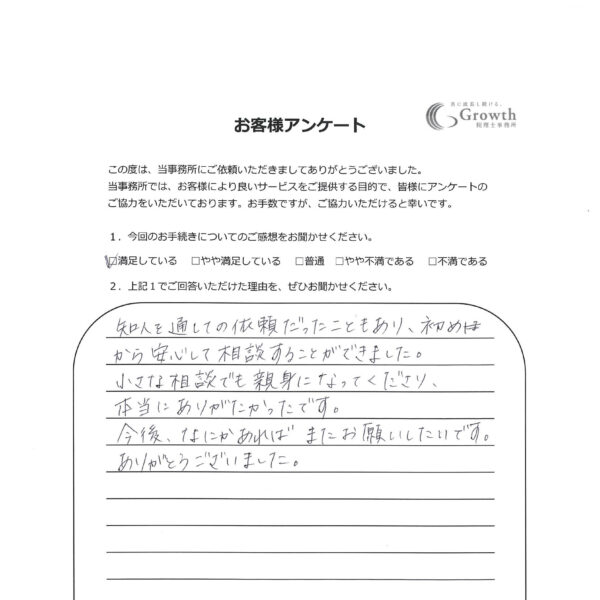 共に成長し続ける。
Growth
税理士事務所
お客様アンケート
この度は、当事務所にご依頼いただきましてありがとうございました。
当事務所では、お客様により良いサービスをご提供する目的で、皆様にアンケートの
ご協力をいただいております。お手数ですが、ご協力いただけると幸いです。
１．今回のお手続きについてのご感想をお聞かせください。
☑満足している □やや満足している □普通 □やや不満である □不満である
２．上記１でご回答いただけた理由を、ぜひお聞かせください。
知人を通しての依頼だったこともあり、初め
から安心して相談することができました。
小さな相談でも親身になってくださり、
本当にありがたかったです。
今後、なにかあれば またお願いしたいです。
ありがとうございました。